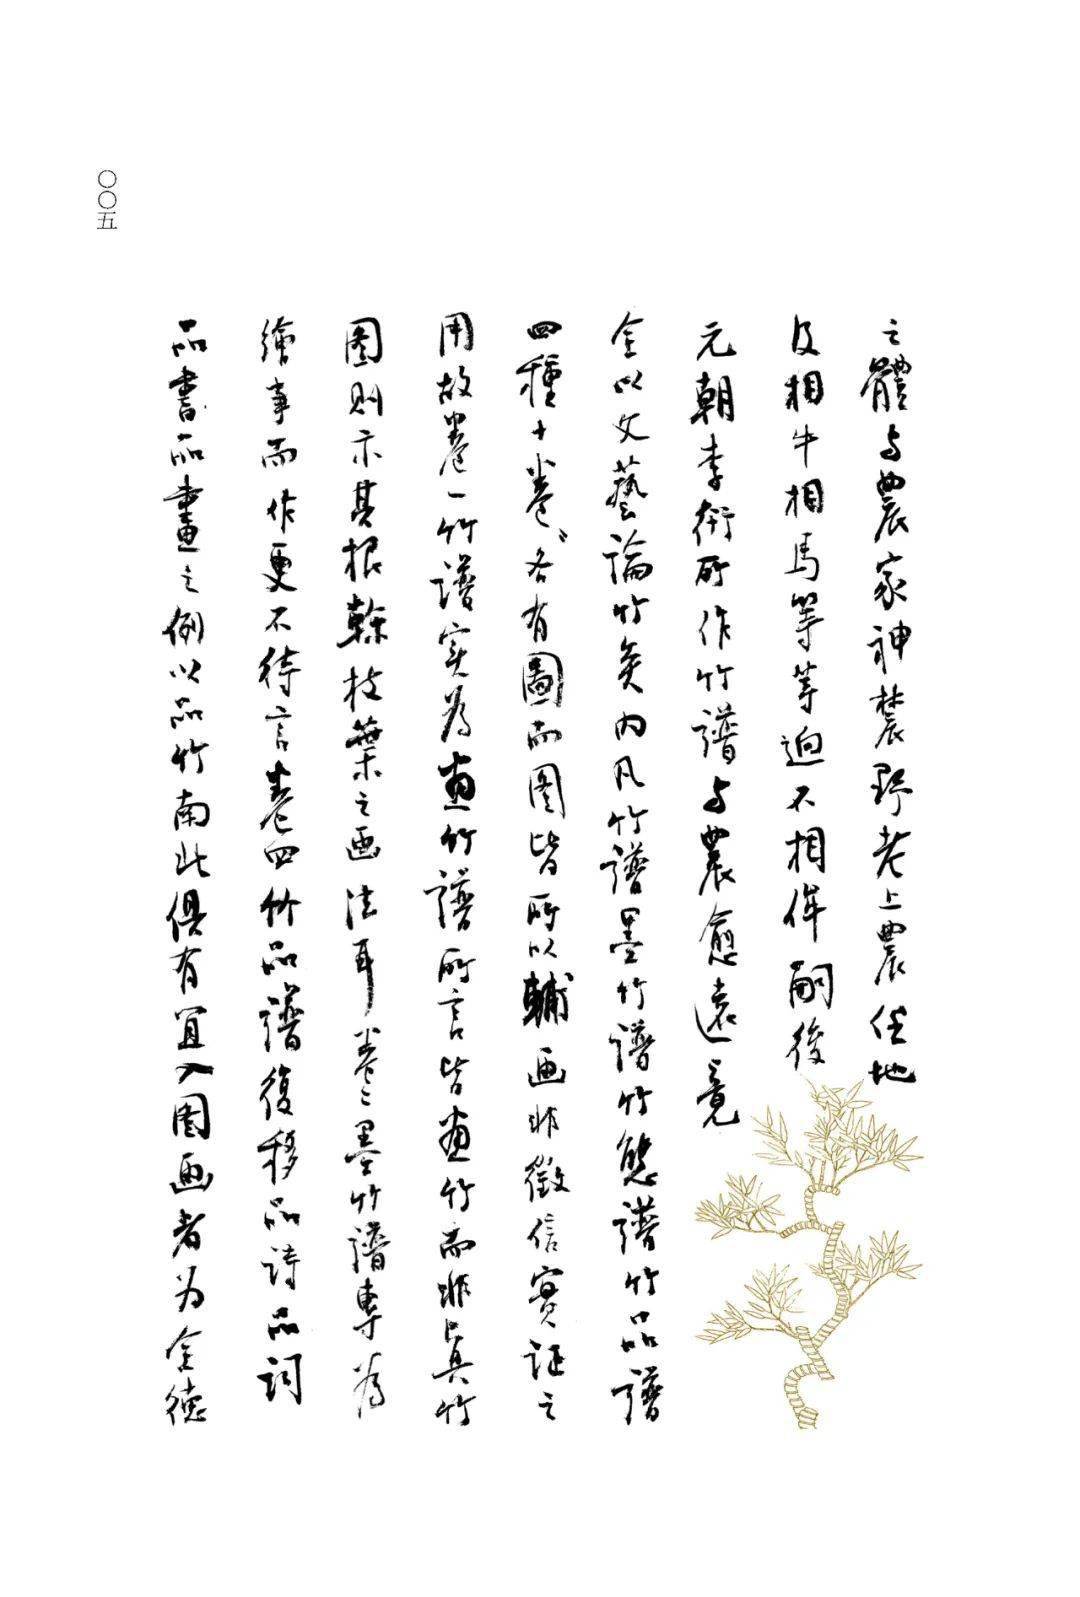 之體与農家神農野老上農任地
及相牛相馬等等迥不相侔嗣後
元朝李衎所作竹譜与農愈遠竟
全以文藝論竹矣内凡竹譜墨竹譜竹態譜竹品譜
四種十卷卷各有圖而图皆所以輔画非徵信實证之
用故卷一竹譜实為畫竹譜所言皆畫竹而非真竹
图则示其根榦枝葉之画法耳卷二墨竹譜專為
繪事而作更不待言卷四竹品譜復移品诗品词
品書品畫之例以品竹南此俱有宜入图画者为全德
〇〇五